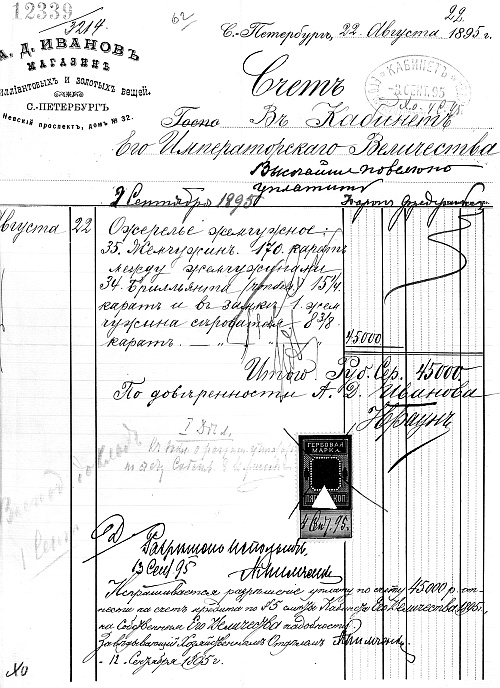 12339
3214.
62
22
А. Д. ИВАНОВЪ
МАГАЗИНЪ
БРИЛЛІАНТОВЫХЪ И ЗОЛОТЫХЪ ВЕЩЕЙ.
С.-ПЕТЕРБУРГЪ
Невскій проспектъ, домъ № 32.
С.-Петербургъ, 22 Августа 1895 г.
КАБИНЕТЪ
-3 СЕНТ. 95
Счетъ
Въ Кабинетъ
Его Императорскаго Величества
Высочайше повелено
уплатить
9 Сентября 1895
Баронъ Фредериксъ
Августа 22 Ожерелье жемчужное:
35. Жемчужин. 170. каратъ
между жемчужинами
34. Брилліянта 15 1/4
каратъ и въ замкѣ 1. жем
чужина съроватая 8 3/8
каратъ. — „ — „ 45000
Итого Руб. Сер. 45000.
По довѣренности А. Д. Иванова
ГЕРБОВАЯ
МАРКА
ПЯТЬ КОП
4 Сент. 95.
13 Сент 95
Испрашивается разрѣшеніе уплату по счету 45000 р. от-
нести на счетъ кредита по § 5 смѣты Кабинета Его Величества 1895 г.
на Собственныя Его Величества надобности
Завѣдывающій Хозяйственнымъ Отдѣломъ
12 Сентября 1895 г.